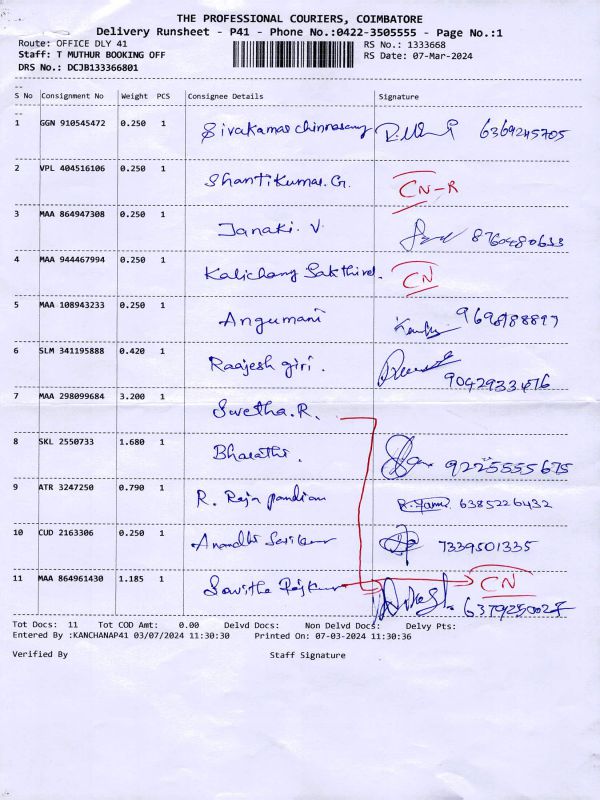 THE PROFESSIONAL COURIERS, COIMBATORE
Delivery Runsheet - P41 - Phone No.:0422-3505555 - Page No.:1
Route: OFFICE DLY 41 RS No.: 1333668
Staff: T MUTHUR BOOKING OFF RS Date: 07-Mar-2024
DRS No.: DCJB133366801
S No Consignment No Weight PCS Consignee Details Signature
1 GGN 910545472 0.250 1 Sivakamas chinnasamy 6369245705
2 VPL 404516106 0.250 1 Shantikumar. G. CN-R
3 MAA 864947308 0.250 1 Janaki. V 8760480633
4 MAA 944467994 0.250 1 Kalichang Sakthivel. CN
5 MAA 108943233 0.250 1 Angumani 9698988897
6 SLM 341195888 0.420 1 Raajesh giri. 9042933476
7 MAA 298099684 3.200 1 Swetha. R.
8 SKL 2550733 1.680 1 Bharathi. 9225555675
9 ATR 3247250 0.790 1 R. Raja pandian 6385226432
10 CUD 2163306 0.250 1 Anandhi 7339501335
11 MAA 864961430 1.185 1 Savitha Rajkumar CN
6379250027
Tot Docs: 11 Tot COD Amt: 0.00 Delvd Docs: Non Delvd Docs: Delvy Pts:
Entered By :KANCHANAP41 03/07/2024 11:30:30 Printed On: 07-03-2024 11:30:36
Verified By Staff Signature